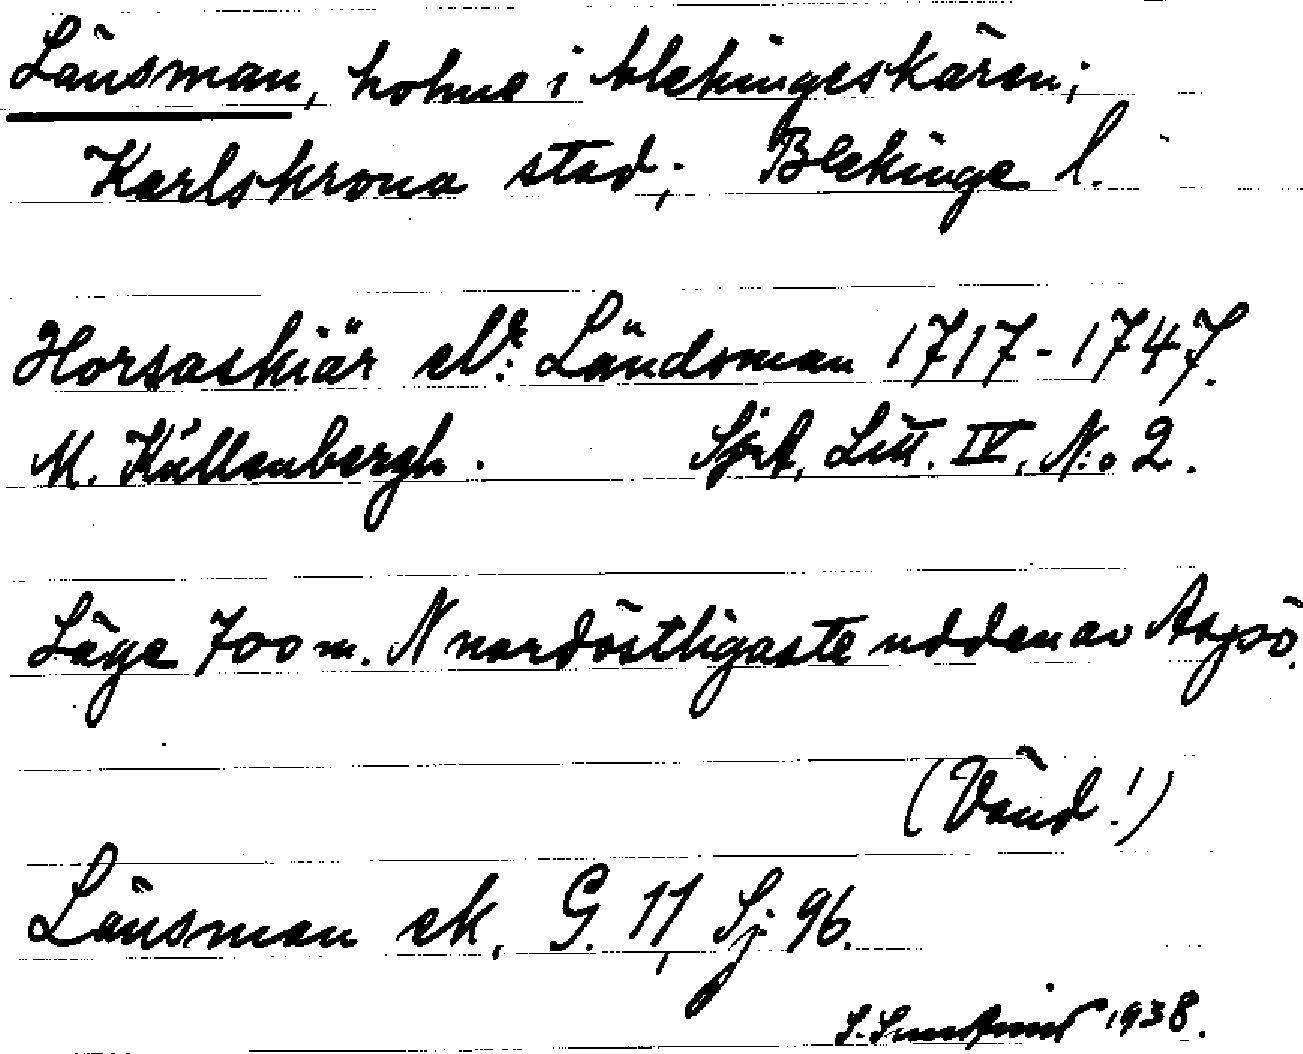 Länsman, holme i blekingeskären;
Karlskrona stad; Blekinge l.
Horsaskiär el. Ländsman 1717-1747.
M. Küllenbergh. SjkA, Litt. IV, N:o 2.
Läge 700 m. N nordöstligaste udden av Aspö.
(Vänd!)
Länsman sk. G. 11, Sj. 96.
1938.